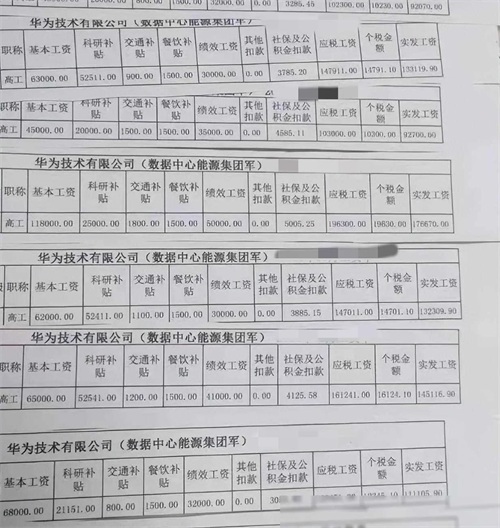 800.00 1500.00 32000.00 0.00 3285.45 102300.00 10230.00 92070.00
职称 基本工资 科研补贴 交通补贴 餐饮补贴 绩效工资 其他扣款 社保及公积金扣款 应税工资 个税金额 实发工资
高工 63000.00 52511.00 900.00 1500.00 30000.00 0.00 3785.20 147911.00 14791.10 133119.90
职称 基本工资 科研补贴 交通补贴 餐饮补贴 绩效工资 其他扣款 社保及公积金扣款 应税工资 个税金额 实发工资
高工 45000.00 20000.00 1500.00 1500.00 35000.00 0.00 4585.11 103000.00 10300.00 92700.00
华为技术有限公司（数据中心能源集团军）
职称 基本工资 科研补贴 交通补贴 餐饮补贴 绩效工资 其他扣款 社保及公积金扣款 应税工资 个税金额 实发工资
高工 118000.00 25000.00 1800.00 1500.00 50000.00 0.00 5005.25 196300.00 19630.00 176670.00
华为技术有限公司（数据中心能源集团军）
职称 基本工资 科研补贴 交通补贴 餐饮补贴 绩效工资 其他扣款 社保及公积金扣款 应税工资 个税金额 实发工资
高工 62000.00 52411.00 1100.00 1500.00 30000.00 0.00 3885.15 147011.00 14701.10 132309.90
华为技术有限公司（数据中心能源集团军）
职称 基本工资 科研补贴 交通补贴 餐饮补贴 绩效工资 其他扣款 社保及公积金扣款 应税工资 个税金额 实发工资
高工 65000.00 52541.00 1200.00 1500.00 41000.00 0.00 4125.58 161241.00 16124.10 145116.90
华为技术有限公司（数据中心能源集团军）
基本工资 科研补贴 交通补贴 餐饮补贴 绩效工资 其他扣款 社保及公积金扣款 应税工资 个税金额 实发工资
68000.00 21151.00 800.00 1500.00 32000.00 0.00